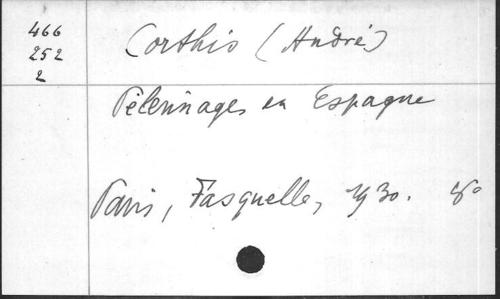 466
252
2
Corthis (André)
Pèlerinages en Espagne
Paris, Fasquelle, 1930. 8°